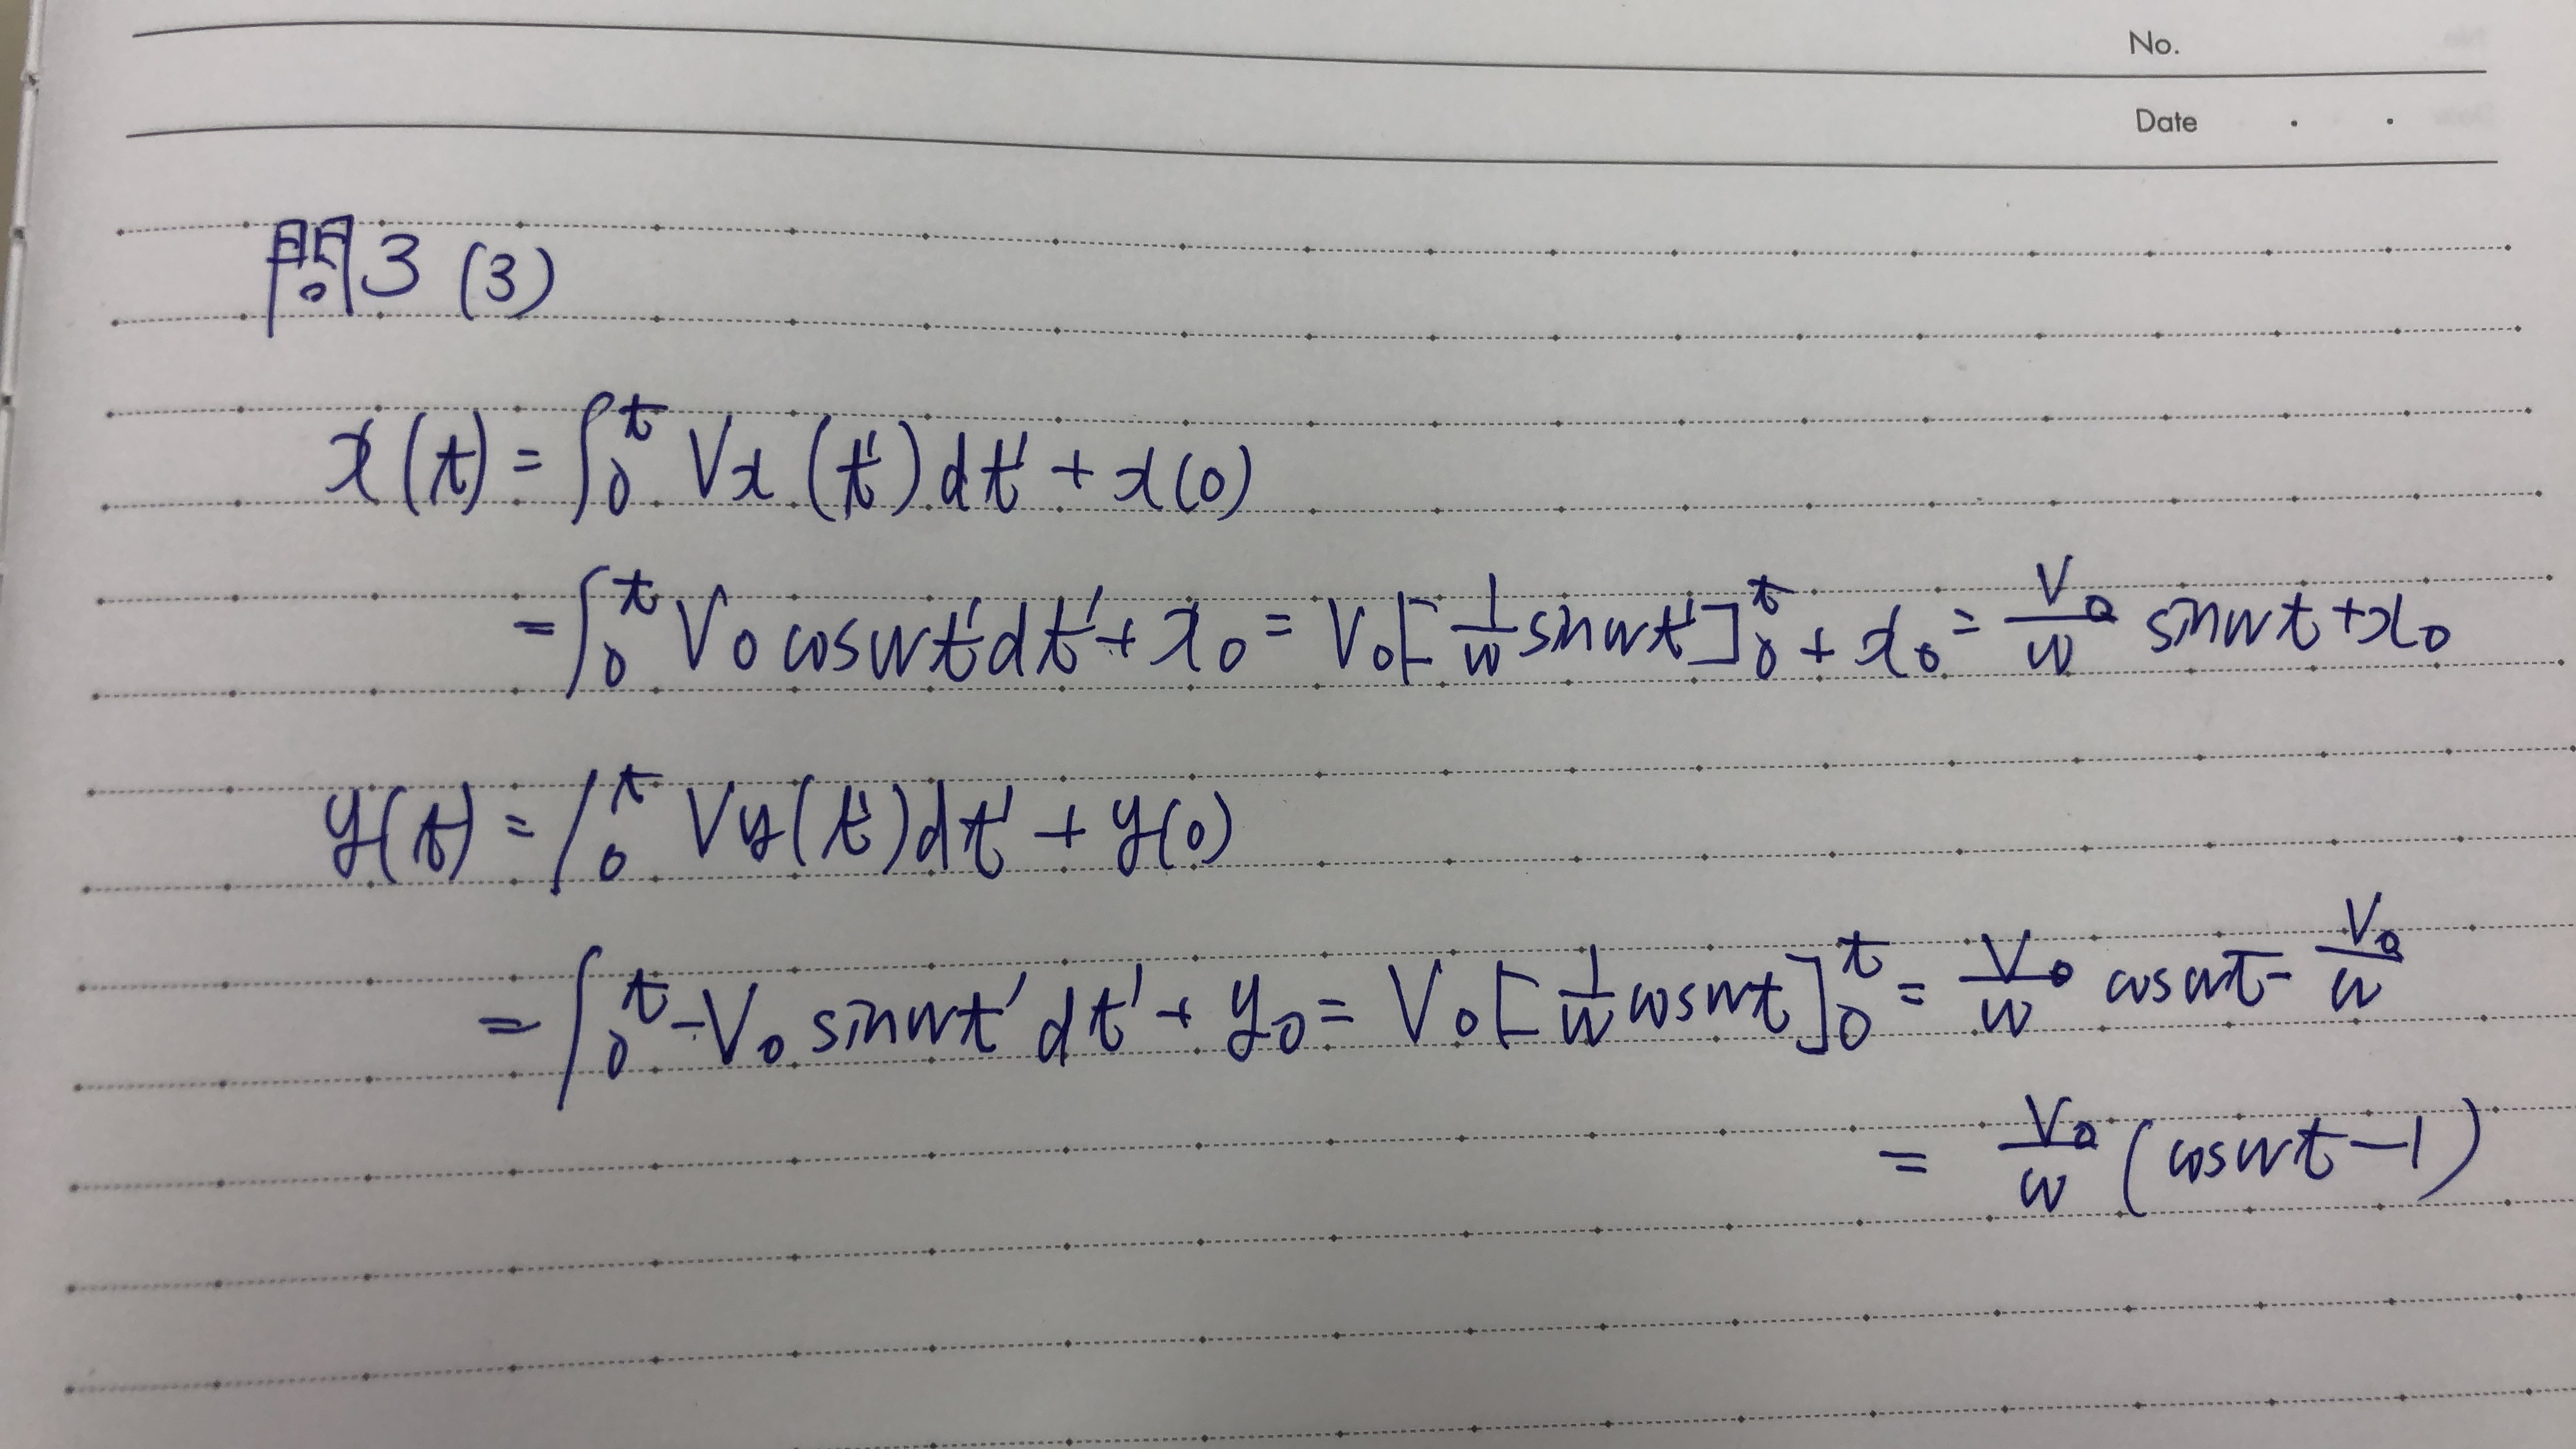 No.
Date . .
問3 (3)
x(t) = ∫₀ᵗ Vx (t') dt' + x(0)
= ∫₀ᵗ V₀ cos wt' dt' + x₀ = V₀ [ 1/w sin wt' ]₀ᵗ + x₀ = V₀/w sin wt + x₀
y(t) = ∫₀ᵗ Vy(t') dt' + y(0)
= ∫₀ᵗ -V₀ sin wt' dt' + y₀ = V₀ [ 1/w cos wt ]₀ᵗ = V₀/w cos wt - V₀/w
= V₀/w (cos wt - 1)